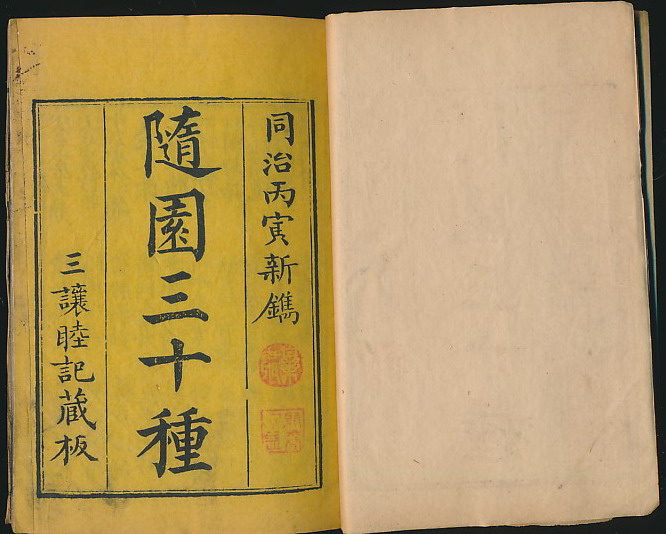 同治丙寅新鐫
隨園三十種
三讓睦記藏板